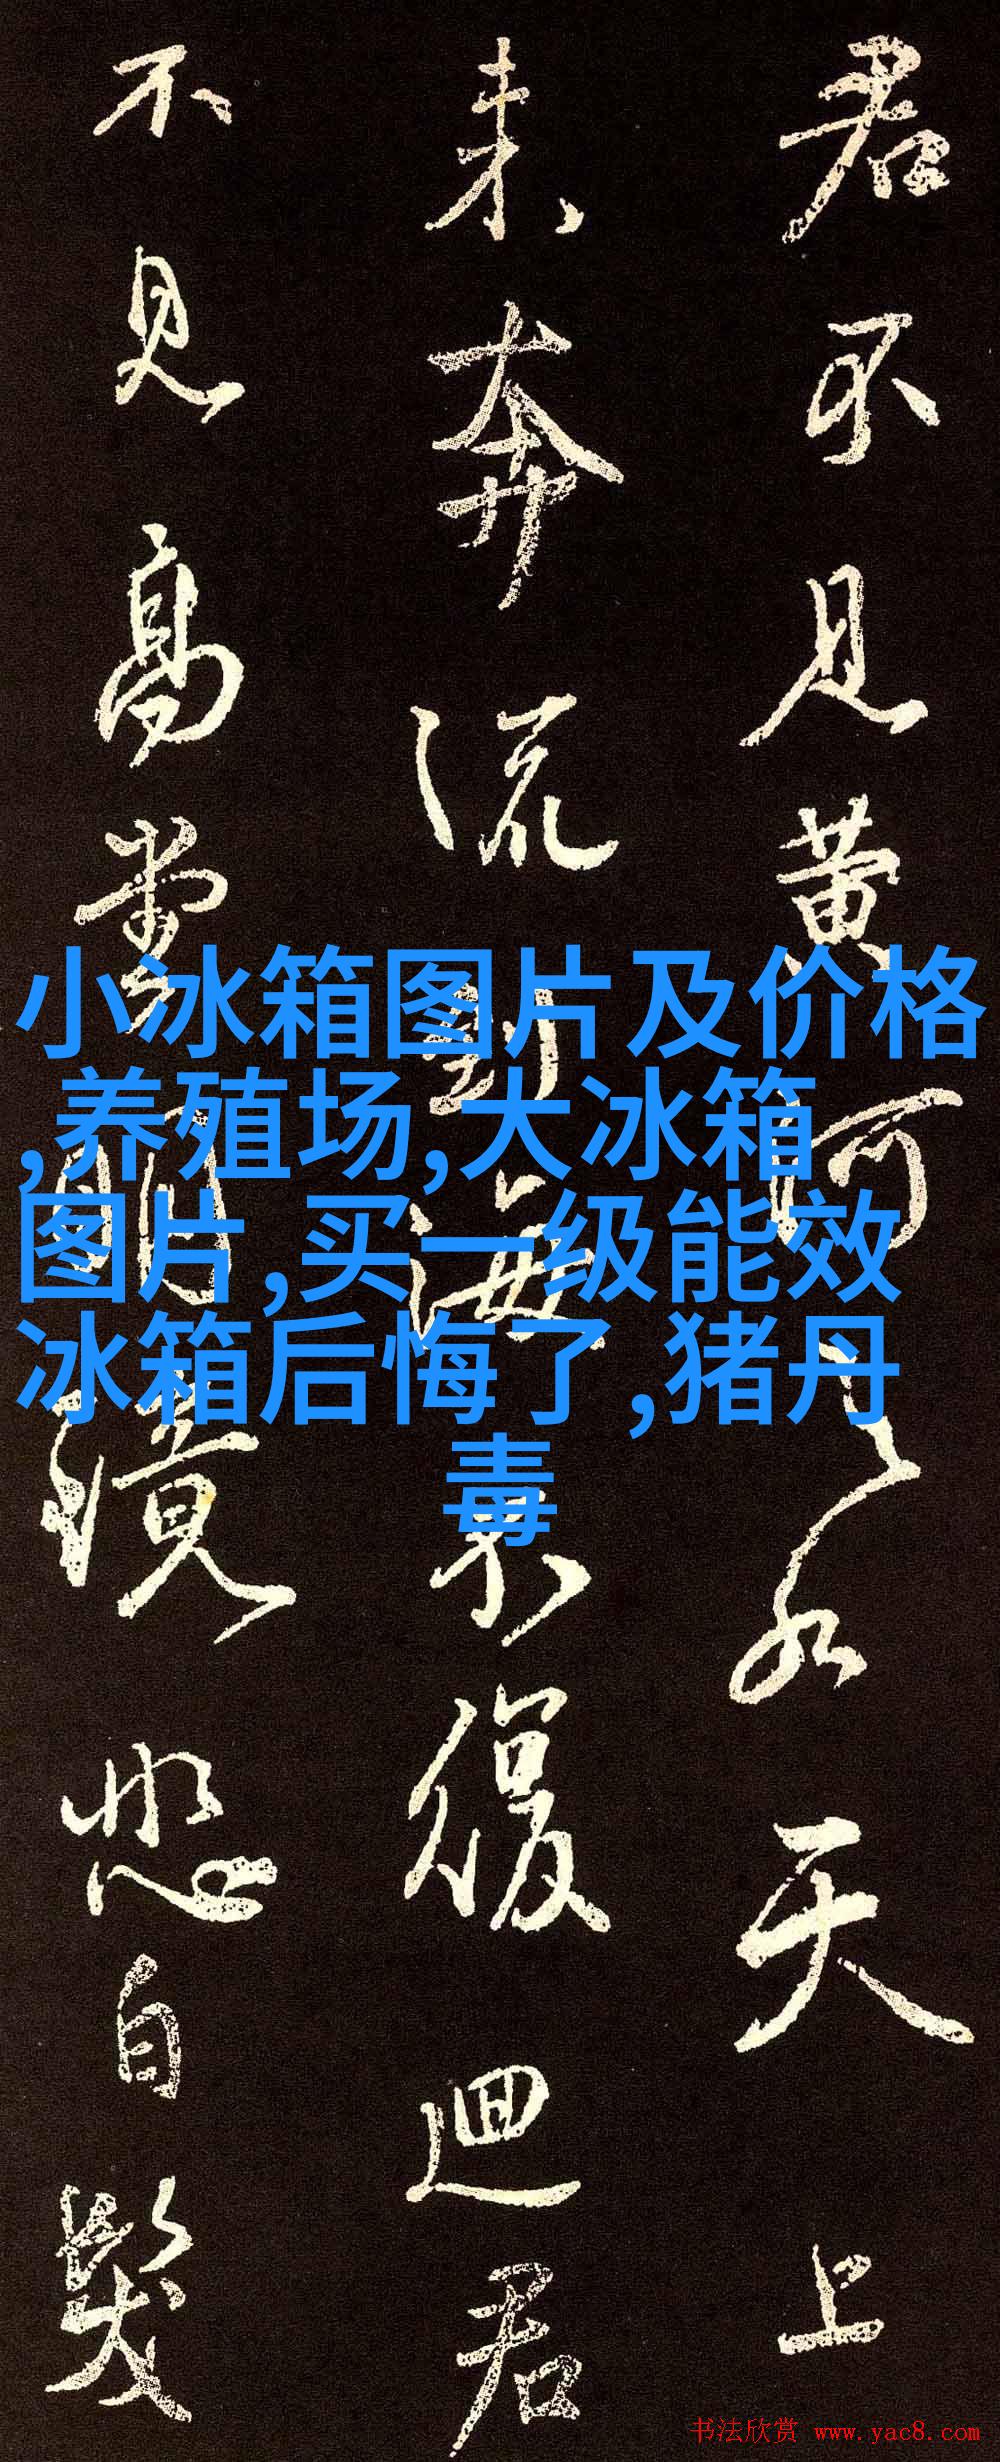 君不見黄河之水天上
来奔流到海不復迴君
不見高堂明鏡悲白髮
小冰箱图片及价格
,养殖场,大冰箱
图片,买一级能效
冰箱后悔了,猪丹
毒
书法欣赏 www.yac8.com